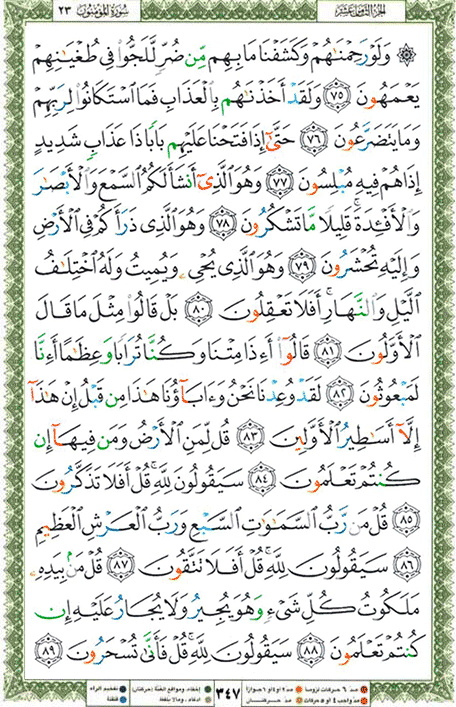 الجزء الثامن عشر سورة المؤمنون ٢٣
۞ وَلَوْ رَحِمْنَٰهُمْ وَكَشَفْنَا مَا بِهِم مِّن ضُرٍّ لَّلَجُّوا۟ فِى طُغْيَٰنِهِمْ
يَعْمَهُونَ ٧٥ وَلَقَدْ أَخَذْنَٰهُم بِٱلْعَذَابِ فَمَا ٱسْتَكَانُوا۟ لِرَبِّهِمْ
وَمَا يَتَضَرَّعُونَ ٧٦ حَتَّىٰٓ إِذَا فَتَحْنَا عَلَيْهِم بَابًا ذَا عَذَابٍ شَدِيدٍ
إِذَا هُمْ فِيهِ مُبْلِسُونَ ٧٧ وَهُوَ ٱلَّذِىٓ أَنشَأَ لَكُمُ ٱلسَّمْعَ وَٱلْأَبْصَٰرَ
وَٱلْأَفْـِٔدَةَ ۚ قَلِيلًا مَّا تَشْكُرُونَ ٧٨ وَهُوَ ٱلَّذِى ذَرَأَكُمْ فِى ٱلْأَرْضِ
وَإِلَيْهِ تُحْشَرُونَ ٧٩ وَهُوَ ٱلَّذِى يُحْىِۦ وَيُمِيتُ وَلَهُ ٱخْتِلَٰفُ
ٱلَّيْلِ وَٱلنَّهَارِ ۚ أَفَلَا تَعْقِلُونَ ٨٠ بَلْ قَالُوا۟ مِثْلَ مَا قَالَ
ٱلْأَوَّلُونَ ٨١ قَالُوٓا۟ أَءِذَا مِتْنَا وَكُنَّا تُرَابًا وَعِظَٰمًا أَءِنَّا
لَمَبْعُوثُونَ ٨٢ لَقَدْ وُعِدْنَا نَحْنُ وَءَابَآؤُنَا هَٰذَا مِن قَبْلُ إِنْ هَٰذَآ
إِلَّآ أَسَٰطِيرُ ٱلْأَوَّلِينَ ٨٣ قُل لِّمَنِ ٱلْأَرْضُ وَمَن فِيهَآ إِن
كُنتُمْ تَعْلَمُونَ ٨٤ سَيَقُولُونَ لِلَّهِ ۚ قُلْ أَفَلَا تَذَكَّرُونَ
٨٥ قُلْ مَن رَّبُّ ٱلسَّمَٰوَٰتِ ٱلسَّبْعِ وَرَبُّ ٱلْعَرْشِ ٱلْعَظِيمِ
٨٦ سَيَقُولُونَ لِلَّهِ ۚ قُلْ أَفَلَا تَتَّقُونَ ٨٧ قُلْ مَنۢ بِيَدِهِۦ
مَلَكُوتُ كُلِّ شَىْءٍ وَهُوَ يُجِيرُ وَلَا يُجَارُ عَلَيْهِ إِن
كُنتُمْ تَعْلَمُونَ ٨٨ سَيَقُولُونَ لِلَّهِ ۚ قُلْ فَأَنَّىٰ تُسْحَرُونَ ٨٩
مد ٦ حركات لزوماً مد ٢ او ٤ او ٦ جوازاً ٣٤٧ إخفاء، ومواقع الغنة (حركتان) تفخيم الراء
مد واجب ٤ او ٥ حركات مد حركتان إدغام، وما لا يلفظ قلقلة